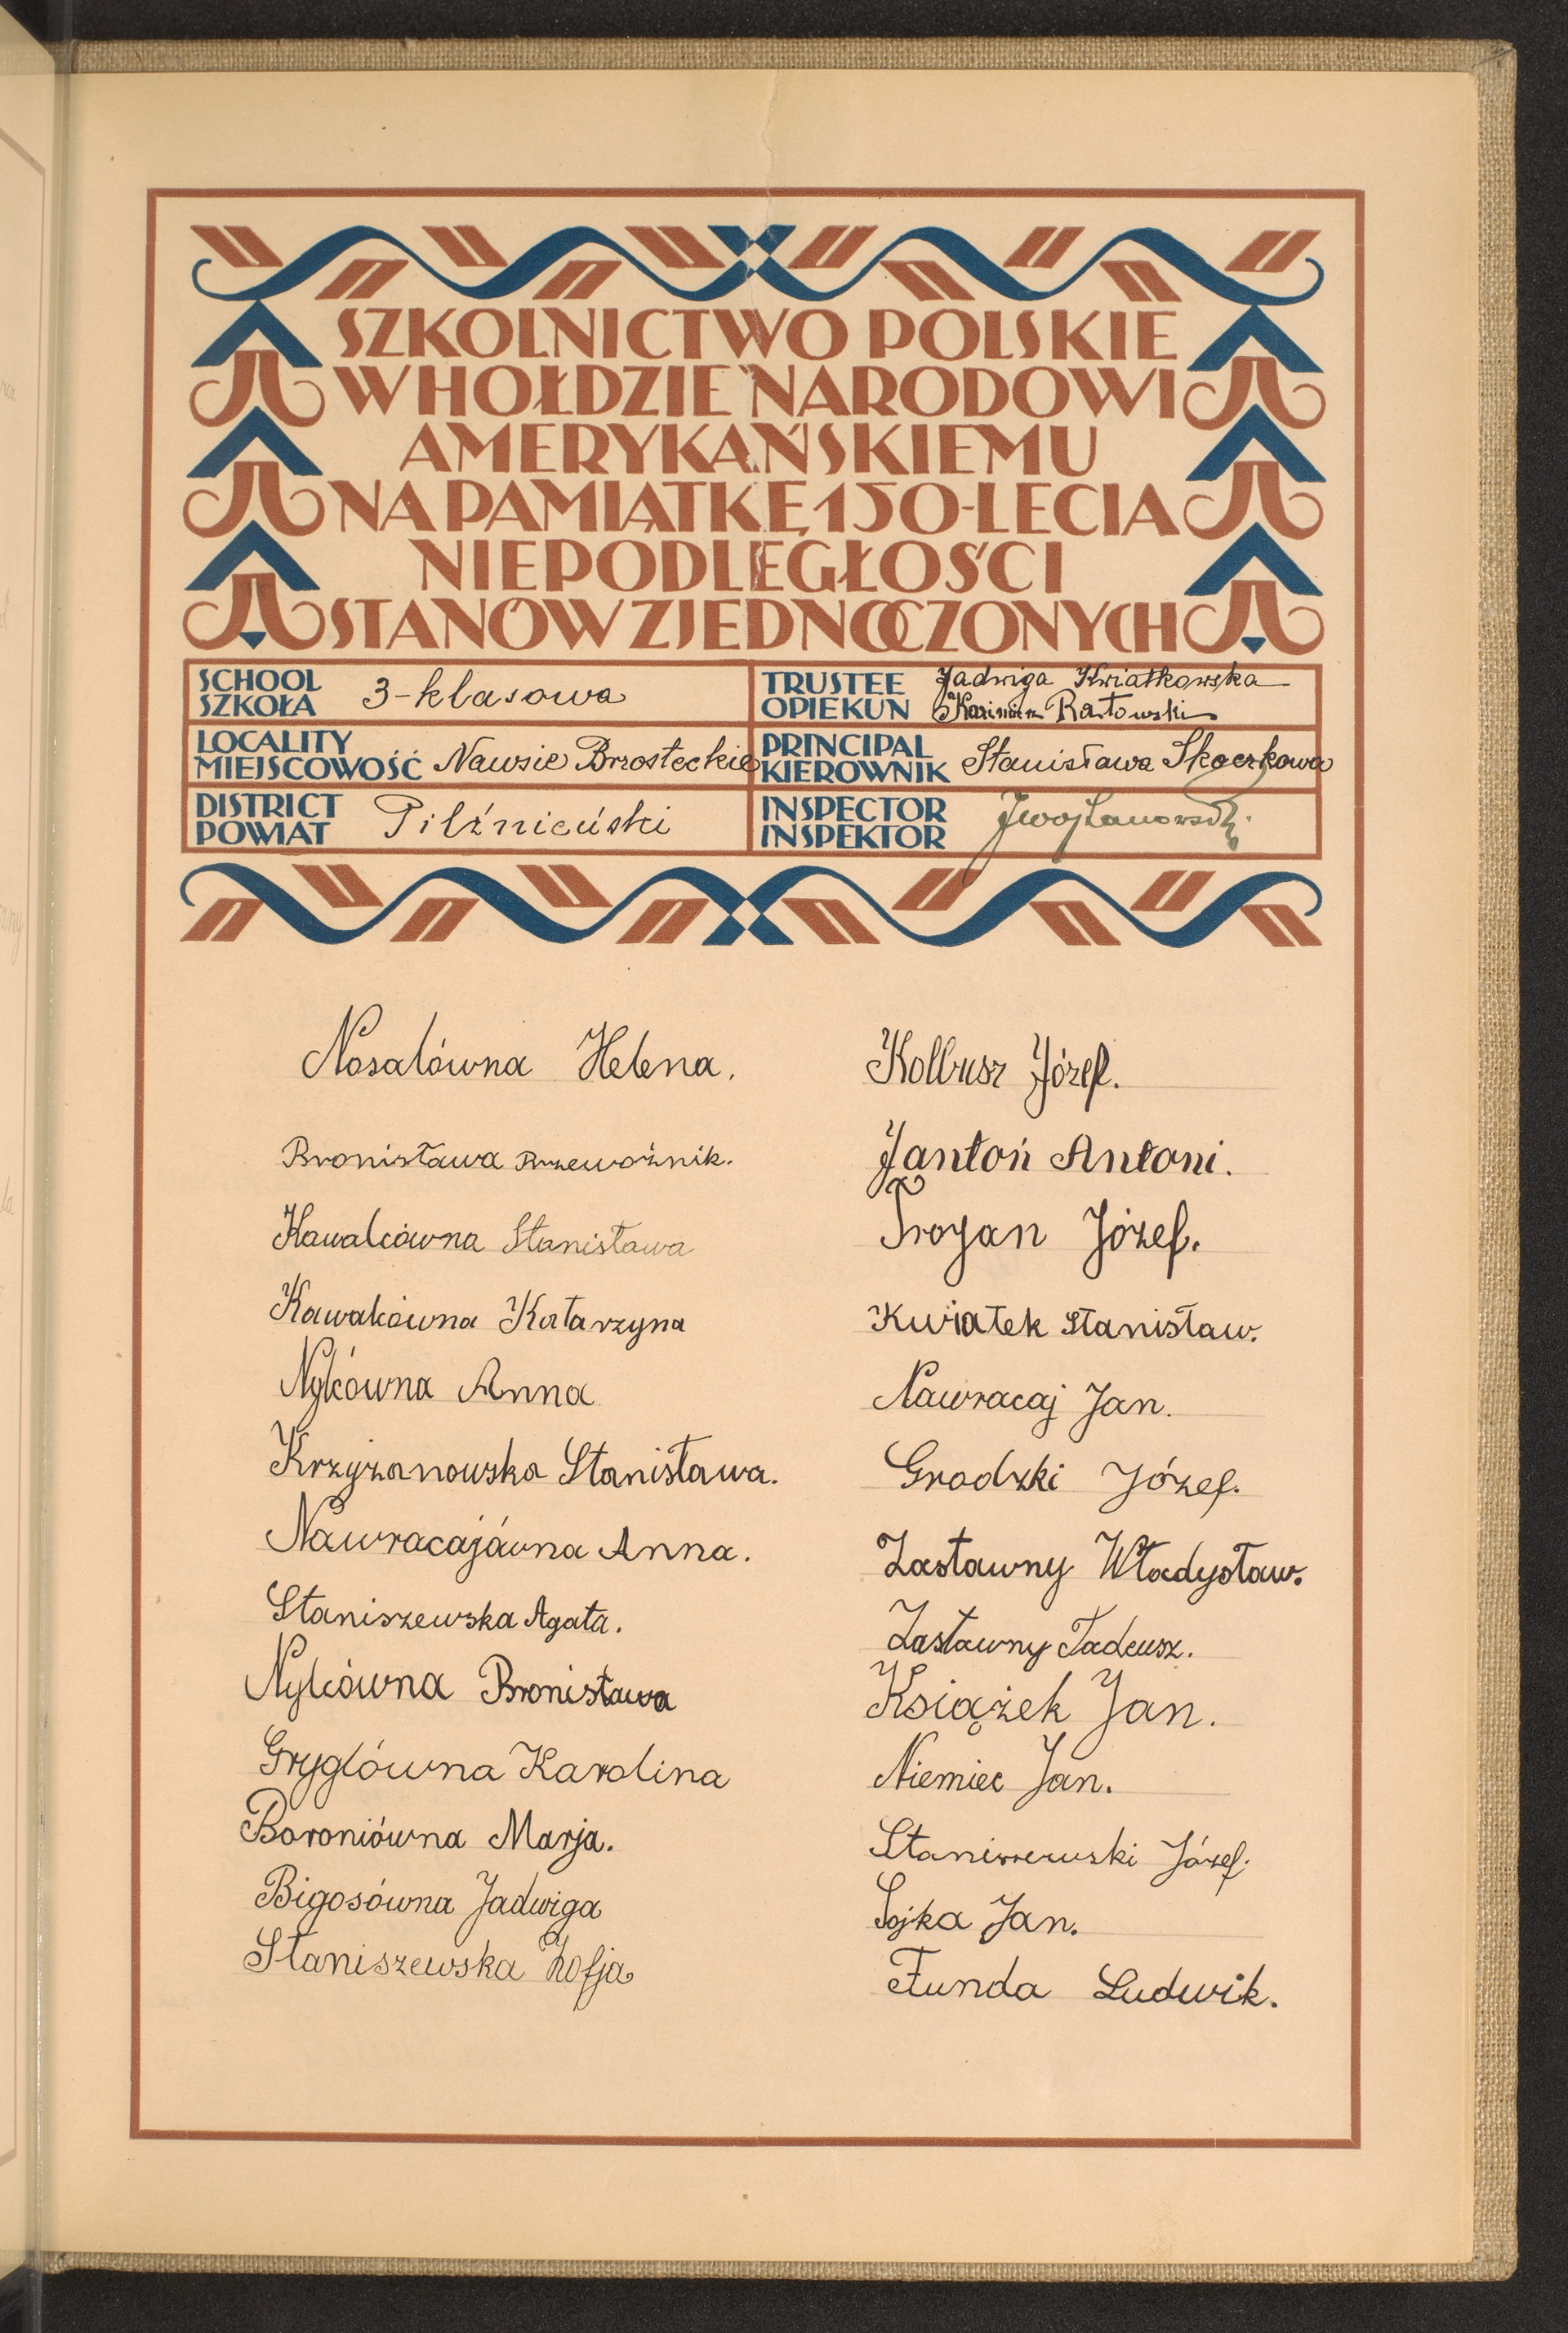 SZKOLNICTWO POLSKIE
W HOŁDZIE NARODOWI
AMERYKAŃSKIEMU
NA PAMIĄTKĘ 150-LECIA
NIEPODLEGŁOŚCI
STANÓW ZJEDNOCZONYCH
SCHOOL
SZKOŁA
3-klasowa
TRUSTEE
OPIEKUN
Jadwiga Kwiatkowska
Kazimierz Ratowski
LOCALITY
MIEJSCOWOŚĆ
Nawsie Brzosteckie
PRINCIPAL
KIEROWNIK
Stanisława Skoczkowa
DISTRICT
POWIAT
Pilźnieński
INSPECTOR
INSPEKTOR
Nosalówna Helena.
Bronisława Przewoźnik.
Kawalcówna Stanisława
Kawalcówna Katarzyna
Nykówna Anna
Krzyżanowska Stanisława.
Nawracajówna Anna.
Staniszewska Agata.
Nykówna Bronisława
Gryglówna Karolina
Boroniówna Marja.
Bigosówna Jadwiga
Staniszewska Zofja
Kolbusz Józef.
Jantoń Antoni.
Trojan Józef.
Kwiatek Stanisław.
Nawracaj Jan.
Grodzki Józef.
Zastawny Władysław.
Zastawny Tadeusz.
Książek Jan.
Niemiec Jan.
Staniszewski Józef.
Sojka Jan.
Funda Ludwik.